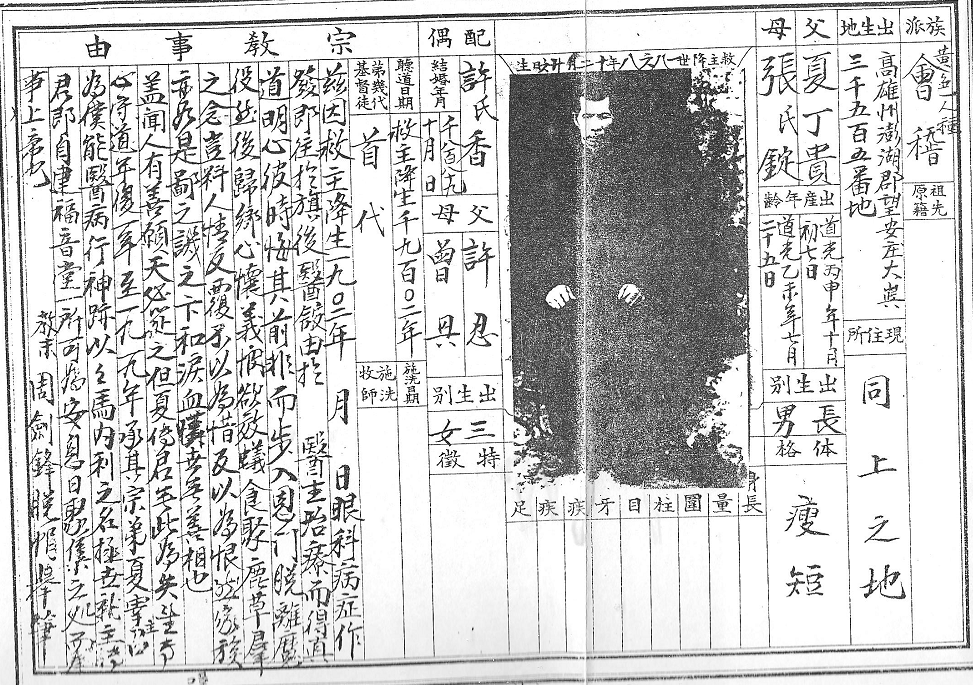 族派
黃色人種
會稽
祖先原籍
出生地
高雄州澎湖郡望安庄大嶼
三千五百五番地
現住所
同上之地
父
母
夏丁貴
張氏錠
出產年齡
道光丙申年十月
初七日
道光乙未年七月
二十五日
出生別
長男
体格
瘦短
救主降世一八六八年十二月
日生
身長
量
圍
柱
目
牙
疾
疾
足
配偶
許氏香
結婚年月
十月
日
父
許忍
母
曾
出生別
三女
特徵
宗教事由
第幾代基督徒
首代
聽道日期
救主降生千九百〇二年
施洗日期
施洗牧師
茲因救主降生一九〇二年 月 日眼科病症作
發即往於旗後醫館由於 醫主治療而得真
道明心彼時悔其前非而步入恩門脫離魔
役然後歸鄉心懷義憤欲效蟻食聚鹿草羣
之念豈料人情反覆不以為惜反以為恨然家族
亦如是鄙之譏之下和淚血
善相也
蓋聞人有善願天必從之但夏傳君至此為失望
心守道年復一年至一九一九年承其宗弟夏
為僕能醫病行神跡以
馬內利之名
君郎自建福音堂一所可為安息日聚集之
教末 周劍鋒脫帽舉筆